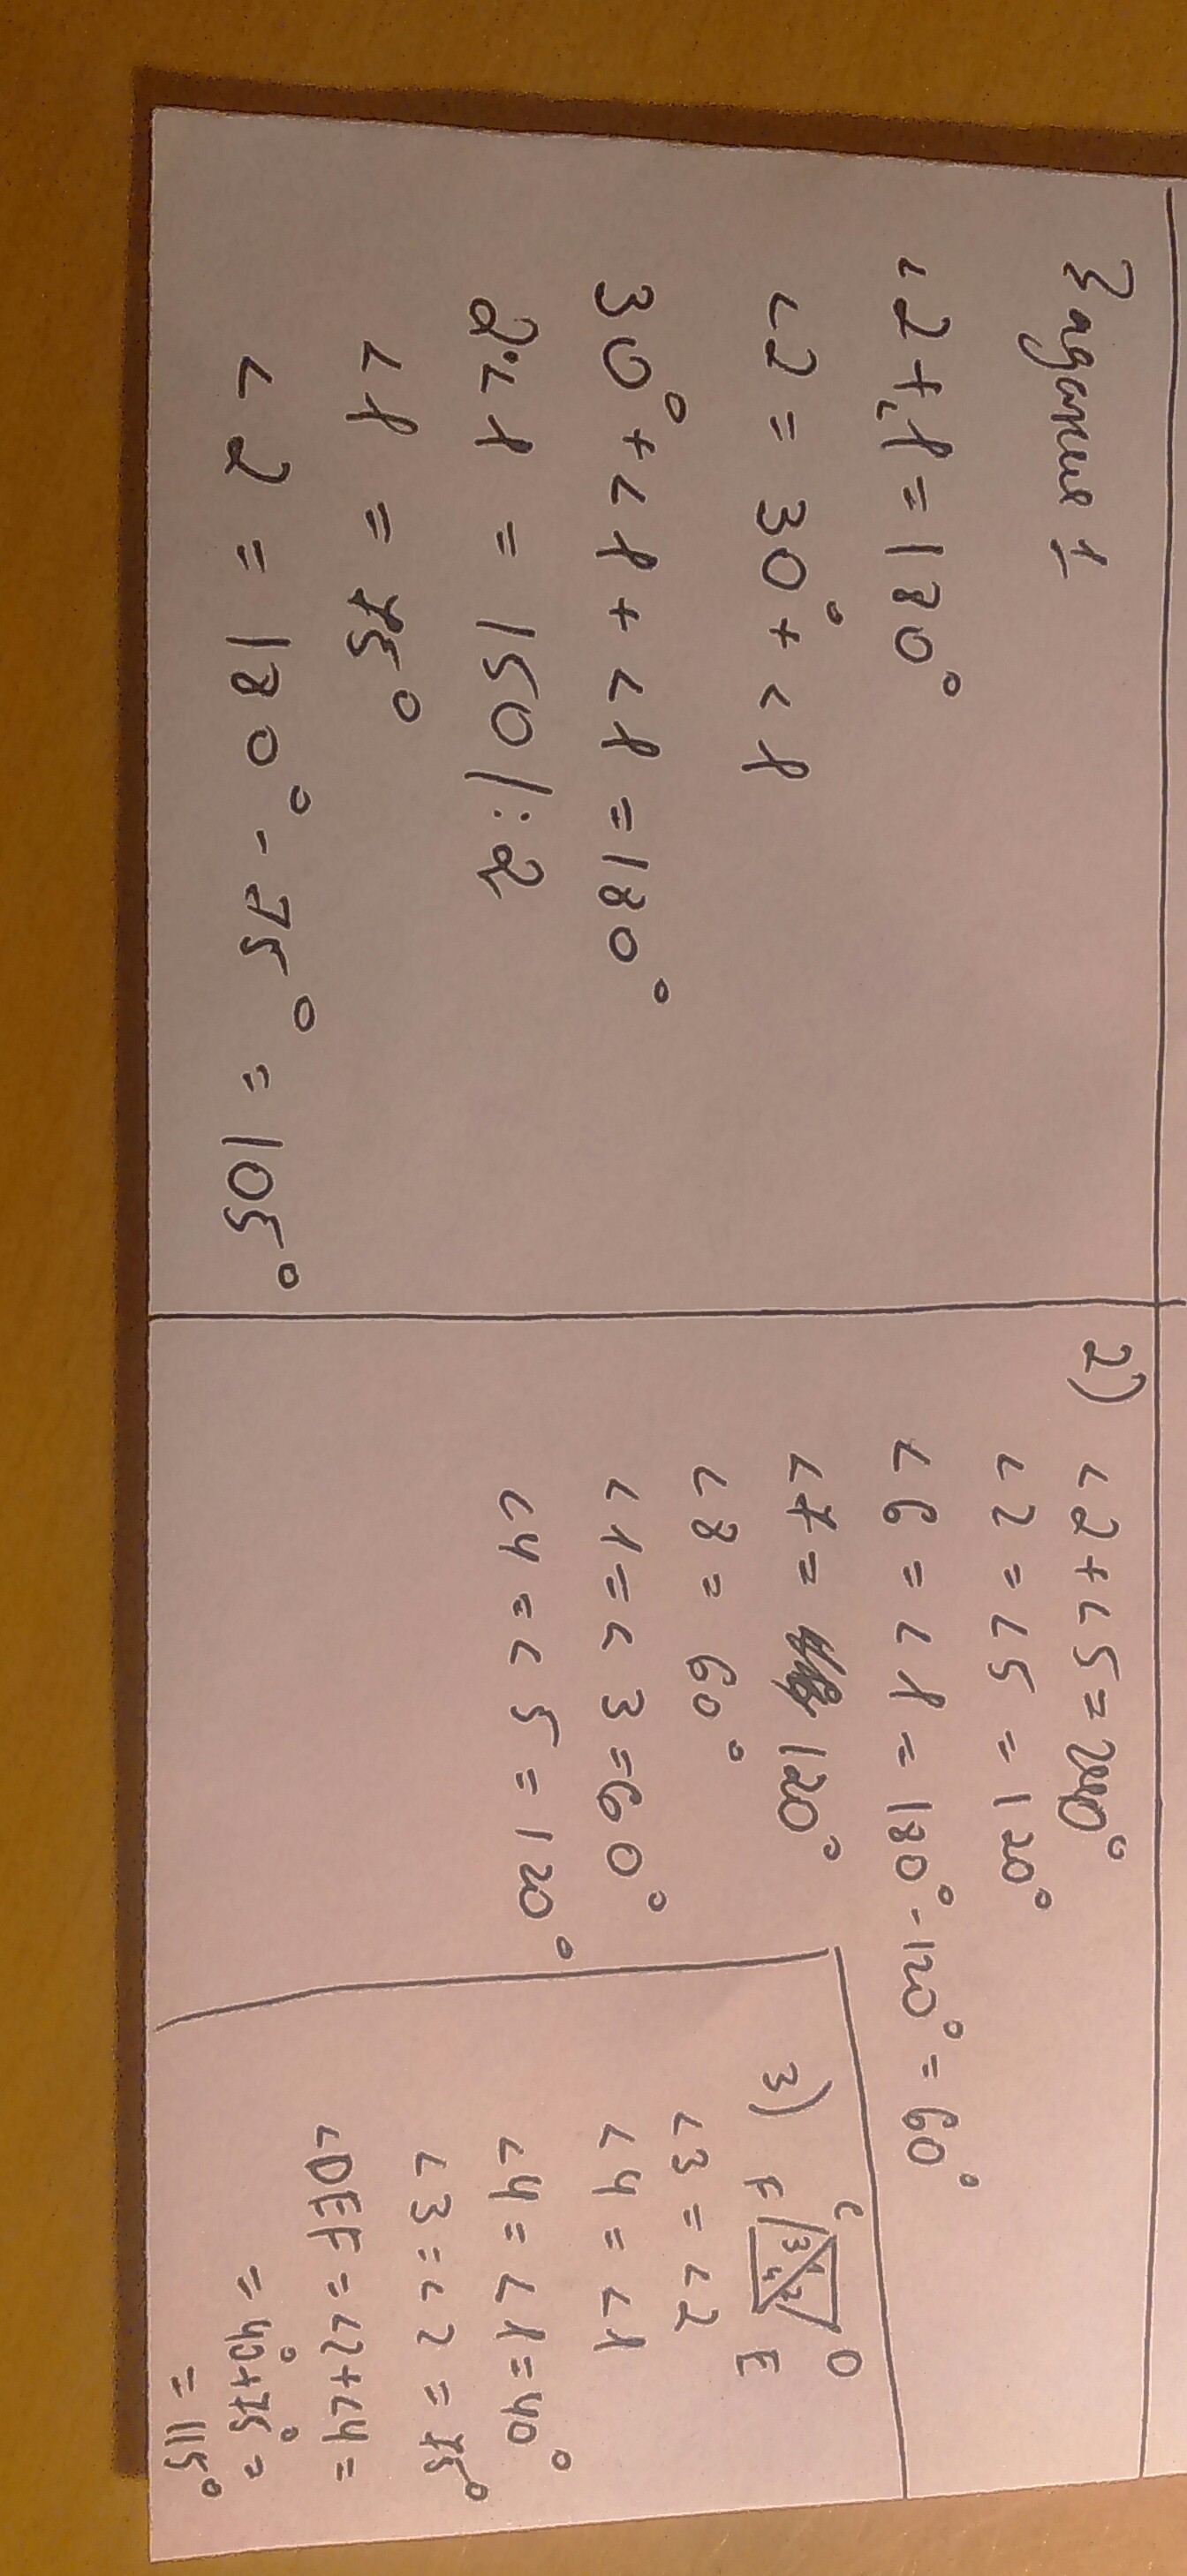 Задание 1
∠2+∠1=180°
∠2 = 30°+∠1
30°+∠1+∠1=180°
2·∠1 = 150/:2
∠1 = 75°
∠2 = 180°-75° = 105°
2) ∠2+∠5=240°
∠2=∠5=120°
∠6=∠1=180°-120°=60°
∠7= 120°
∠8= 60°
∠1=∠3=60°
∠4=∠5=120°
3) C D
F 3 1 4 2 E
∠3=∠2
∠4=∠1
∠4=∠1=40°
∠3=∠2=75°
∠DEF=∠2+∠4=
=40°+75°=
=115°